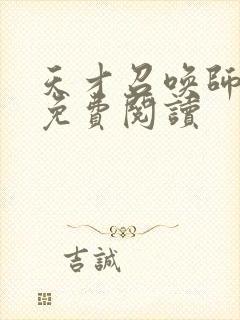 天才召喚師
免費閱讀
吉誠